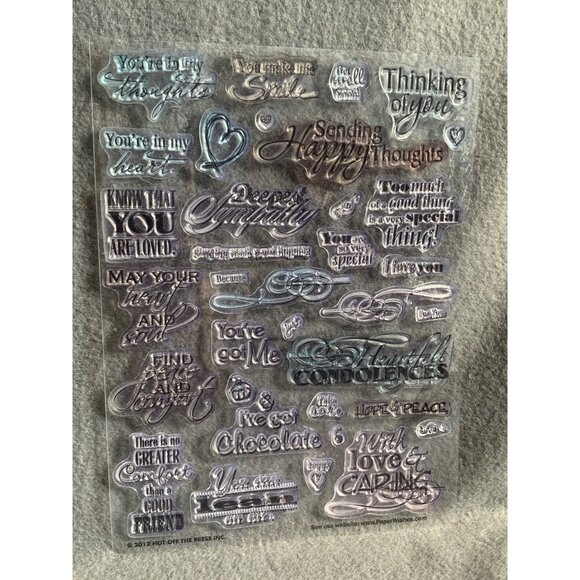 You're in my
thoughts
You make me
Smile
Thinking
of you
You're in my
heart.
Sending
Happy Thoughts
KNOW THAT
YOU
ARE LOVED.
Deepest
Sympathy
Too much
of a good thing
is a very special
thing!
You
are so very
special
I love you
MAY YOUR
heart
AND
soul
Because
You've
got Me
Heartfelt
CONDOLENCES
FIND
peace
AND
comfort
&
I've got
Chocolate
HOPE & PEACE
There is no
GREATER
Comfort
than a
GOOD
FRIEND
You can
lean
on me.
happy
With
love &
CARING
See our website: www.PaperWishes.com
© 2012 HOT OFF THE PRESS INC.